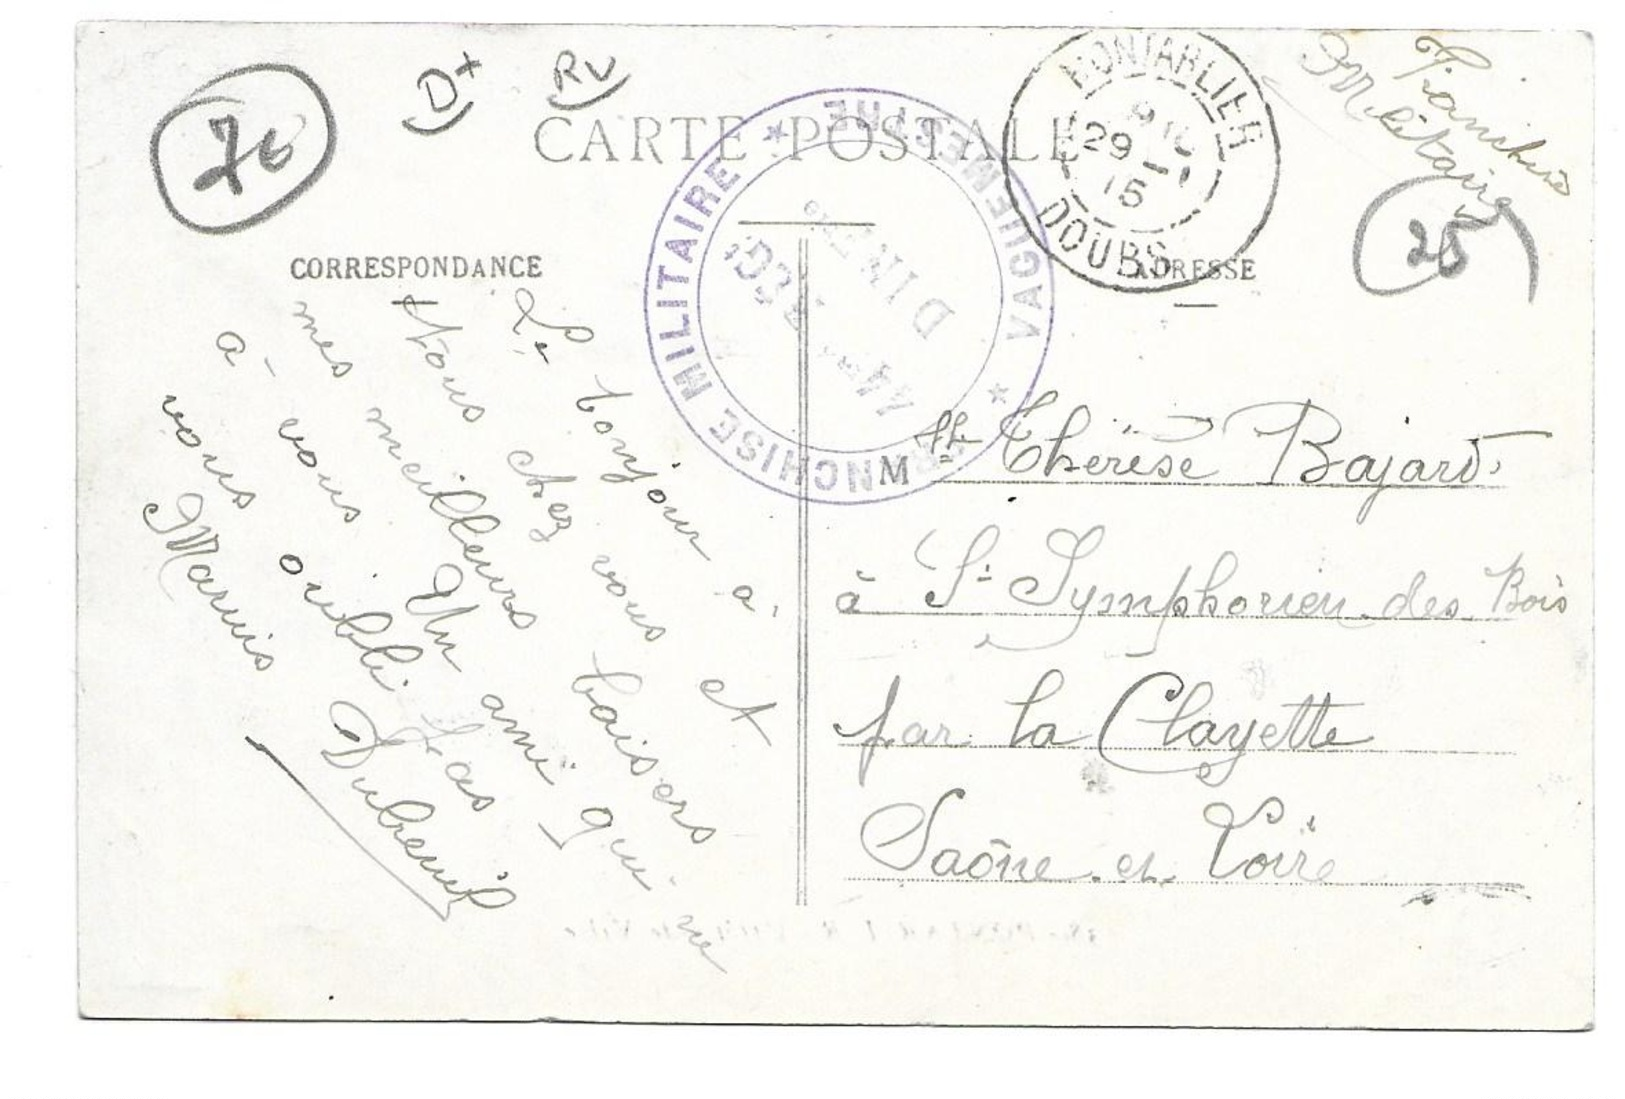 7e
D+
RV
CARTE POSTALE
CORRESPONDANCE
ADRESSE
Franchise
Militaire
25
PONTARLIER
29 -1
15
DOUBS
FRANCHISE MILITAIRE
44me
Le bonjour à
tous chez vous et
mes meilleurs baisers
à vous Un ami qui ne
vous oublie pas
Marius Dubreuil
Mlle Thérèse Bajard
à St Symphorien des Bois
par la Clayette
Saône et Loire